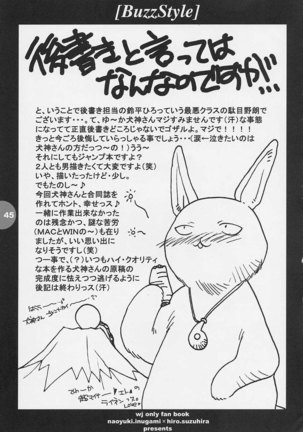 [BuzzStyle]
後書きと言っては
なんなのですが!!
と、いうことで後書き担当の鈴平ひろっていう最悪クラスの駄目野朗で
ございます・・・。て、ゆ～か犬神さんマジすみませんです(汗)な事態
になってて正直後書きどころじゃないでゴザルよ。マジで!!!!
きっと今ごろ後悔していらっしゃる事でしょう…(涙←泣きたいのは
犬神さんの方だっつ～の!)うう～
それにしてもジャンプ本ですよ?
2人とも男描きたくて大変ですよ(笑)
いや、描いたったけど・少し。
でもたのし～♪
今回犬神さんと合同誌を
作れてホント、幸せっス♪
一緒に作業出来なかった
のは残念かつ、謎な苦労
(MACとWINの～)も在り
ましたが、いい思い出に
なりそうですし(笑)
つー事で、(?)いつもハイ・クオリティ
な本を作る犬神さんの原稿の
完成度に怯えつつ逃げるように
後記は終わりっス(汗)
45
wj only fan book
naoyuki.inugami×hiro.suzuhira
presents